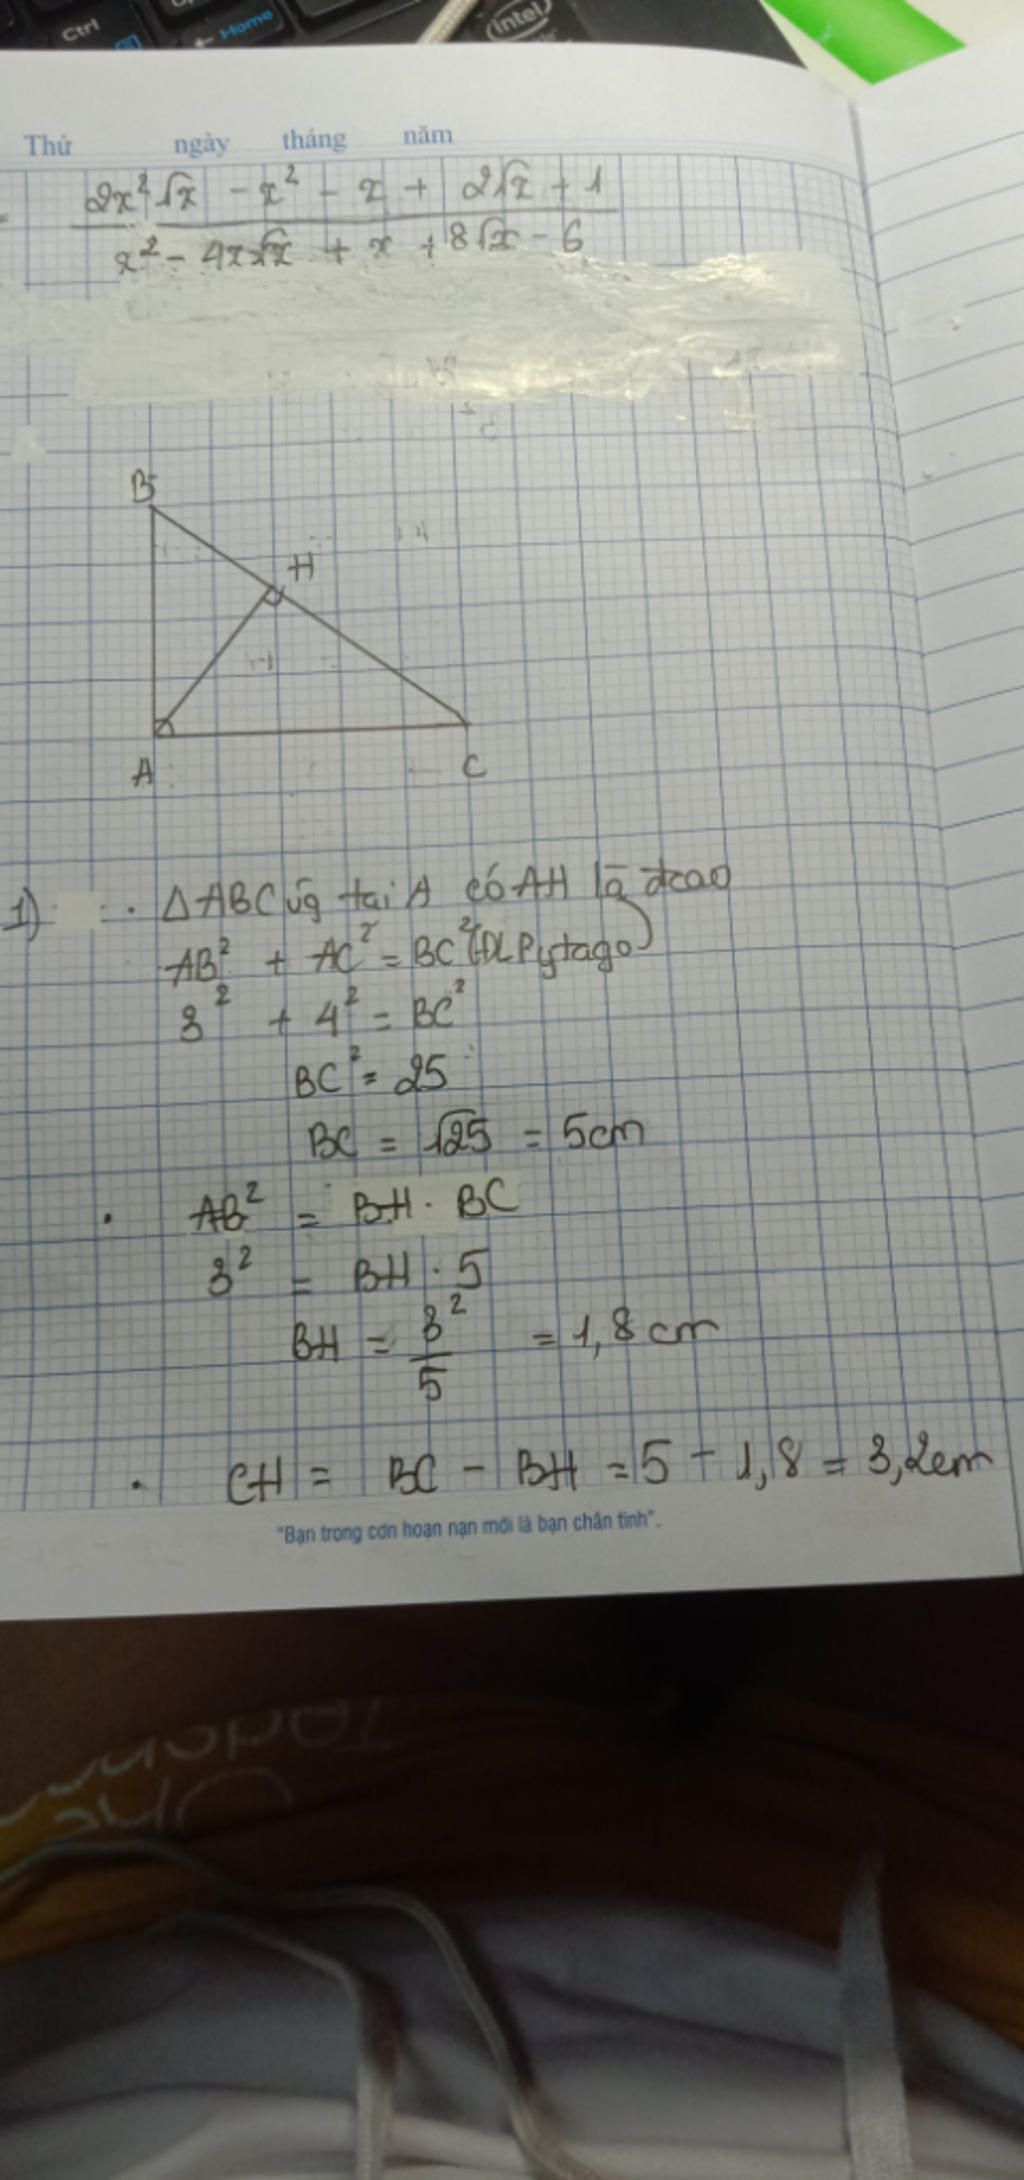 Ctrl
← Home
intel
Thứ ngày tháng năm
= 2x²√x - x² - x + 2√x + 1
x² - 4x√x + x + 8√x - 6
B
H
A
C
1) · ΔABC vg tại A có AH là đcao
AB² + AC² = BC² (ĐL Pytago)
3² + 4² = BC²
BC² = 25
BC = √25 = 5cm
· AB² = BH . BC
3² = BH . 5
BH = 3²/5 = 1,8 cm
· CH = BC - BH = 5 - 1,8 = 3,2cm
"Bạn trong cơn hoạn nạn mới là bạn chân tình".